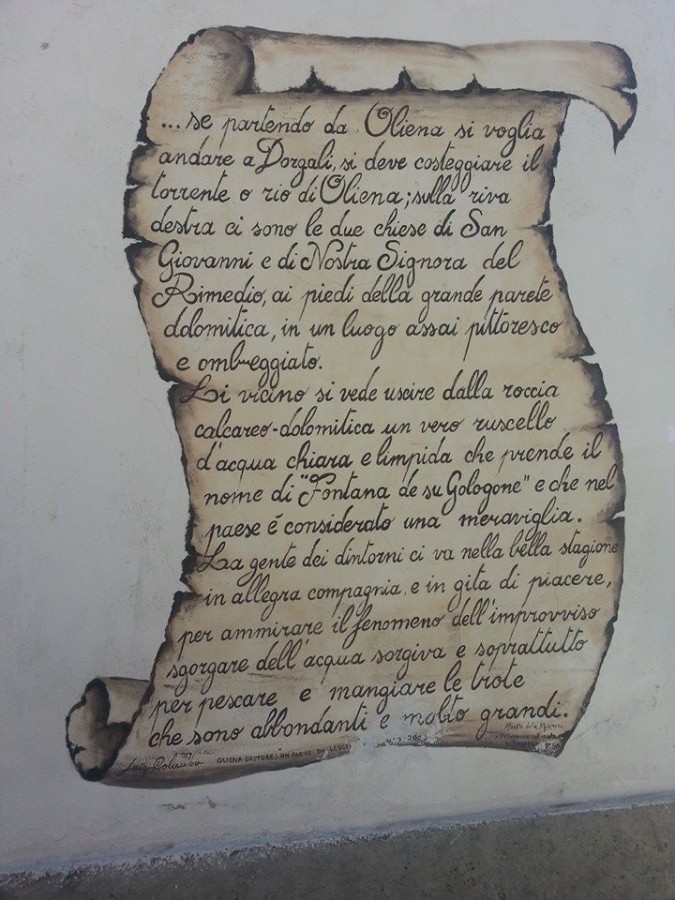 ...se partendo da Oliena si voglia
andare a Dorgali, si deve costeggiare il
torrente o rio di Oliena; sulla riva
destra ci sono le due chiese di San
Giovanni e di Nostra Signora del
Rimedio, ai piedi della grande parete
dolomitica, in un luogo assai pittoresco
e ombreggiato.
Li vicino si vede uscire dalla roccia
calcareo-dolomitica un vero ruscello
d'acqua chiara e limpida che prende il
nome di "Fontana de su Gologone" e che nel
paese é considerato una meraviglia.
La gente dei dintorni ci va nella bella stagione
in allegra compagnia, e in gita di piacere,
per ammirare il fenomeno dell'improvviso
sgorgare dell'acqua sorgiva e soprattutto
per pescare e mangiare le trote
che sono abbondanti e molto grandi.
OLIENA D'AUTORE: UN PAESE